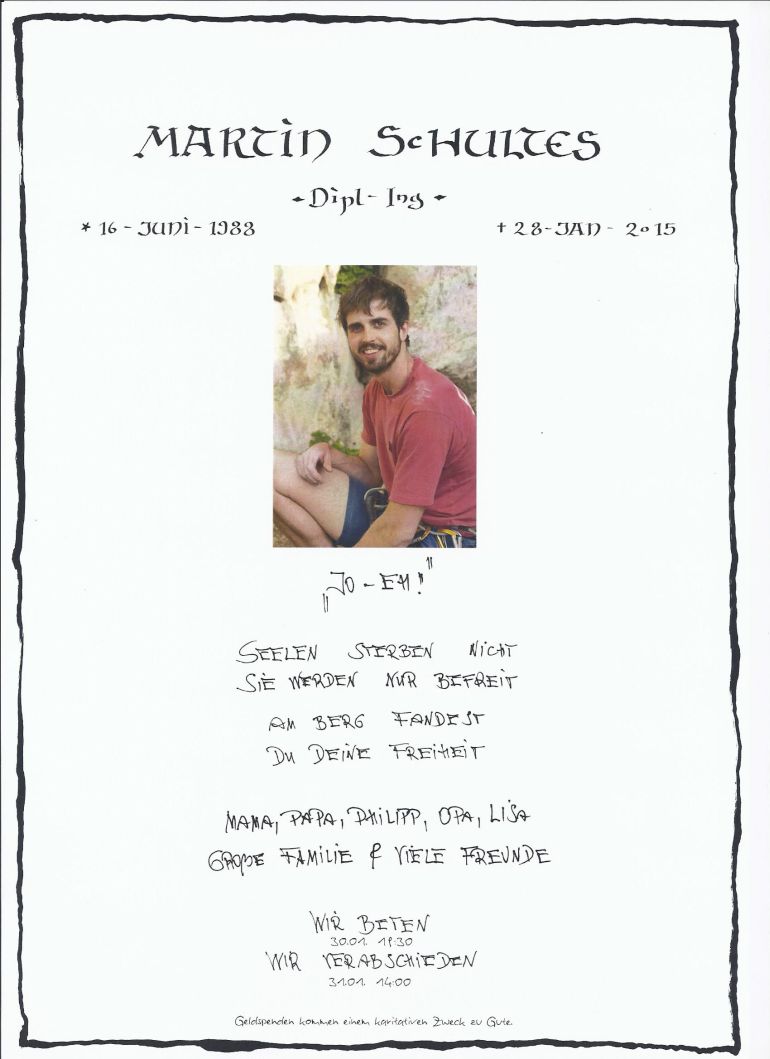 MARTIN SCHULTES
- Dipl - Ing -
* 16 - JUNI - 1988
† 28 - JAN - 2015
„JO - EH!"
SEELEN STERBEN NICHT
SIE WERDEN NUR BEFREIT
AM BERG FANDEST
DU DEINE FREIHEIT
MAMA, PAPA, PHILIPP, OPA, LISA
GROßE FAMILIE & VIELE FREUNDE
WIR BETEN
30.01. 19:30
WIR VERABSCHIEDEN
31.01. 14:00
Geldspenden kommen einem karitativen Zweck zu Gute.